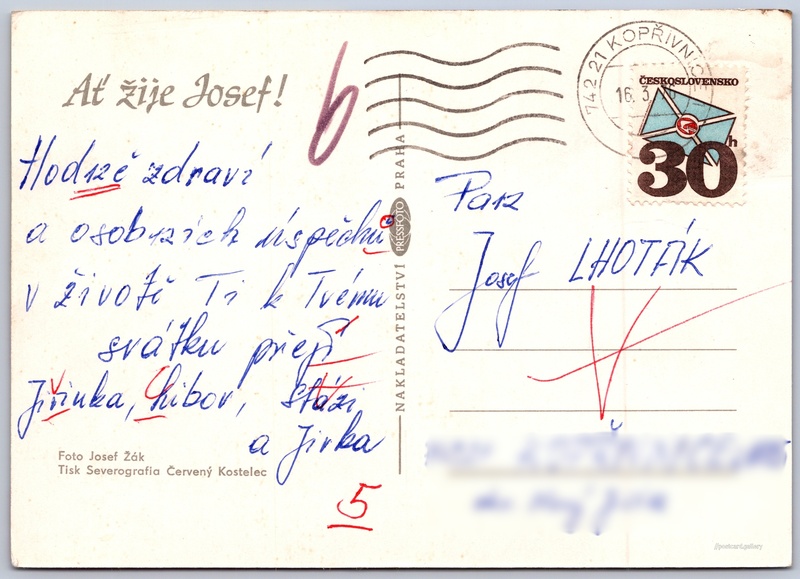 Ať žije Josef!
6
Hodně zdraví
a osobních úspěchů
v životě Ti k Tvému
svátku přejí
Jiřinka, Libor, Stázi
a Jirka
Foto Josef Žák
Tisk Severografia Červený Kostelec
5
NAKLADATELSTVÍ PRESSFOTO PRAHA
742 21 KOPŘIVNICE
16. 3.
ČESKOSLOVENSKO
30h
Pan
Josef LHOTÁK
postcard.gallery